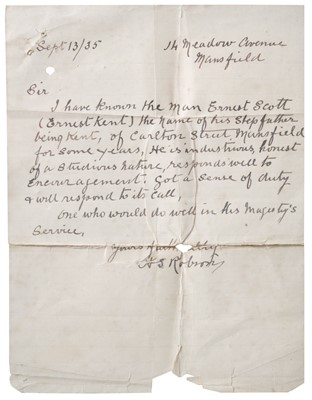 Sept 13/35 14 Meadow Avenue
Mansfield
Sir
I have known the Man Ernest Scott
(Ernest Kent) the name of his Stepfather
being Kent, of Carlton Street Mansfield
for Some Years. He is industrious honest
of a Studious nature, responds well to
Encouragement. Got a Sense of duty
& will respond to its Call,
One who would do well in His Magesty's
Service,
Yours faithfully